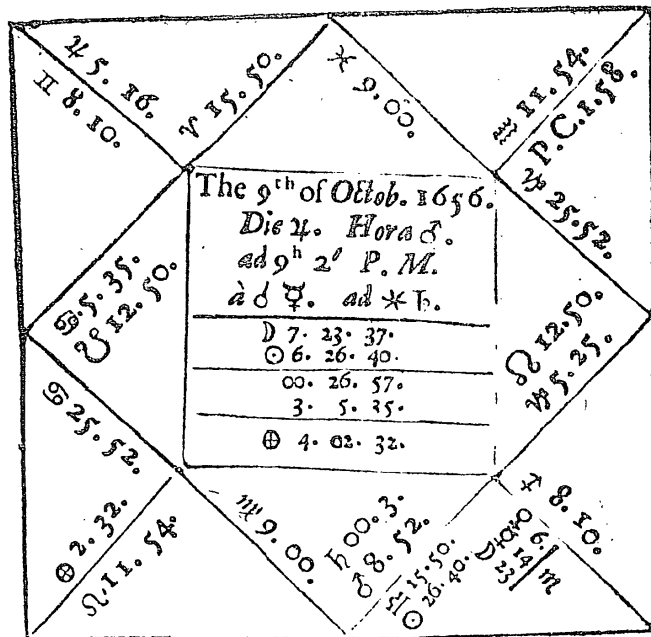 ♃ 5. 16.
♊ 8. 10.
♈ 15. 50.
♓ 9. 00.
♒ 11. 54.
P. C. 1. 58.
♑ 25. 52.
The 9th of Octob. 1656.
Die ♃. Hora ♂.
ad 9h 2' P. M.
à ☌ ☿. ad ⚹ ♄.
☽ 7. 23. 37.
☉ 6. 26. 40.
00. 26. 57.
3. 5. 35.
⊕ 4. 02. 32.
♋ 5. 35.
☋ 12. 50.
☊ 12. 50.
♑ 5. 25.
♋ 25. 52.
⊕ 2. 32.
♌ 11. 54.
♍ 9. 00.
♄ 00. 3.
♂ 8. 52.
♎ 15. 50.
☉ 26. 40.
♀ 6.
☿ 14 ♏
☽ 23
♐ 8. 10.